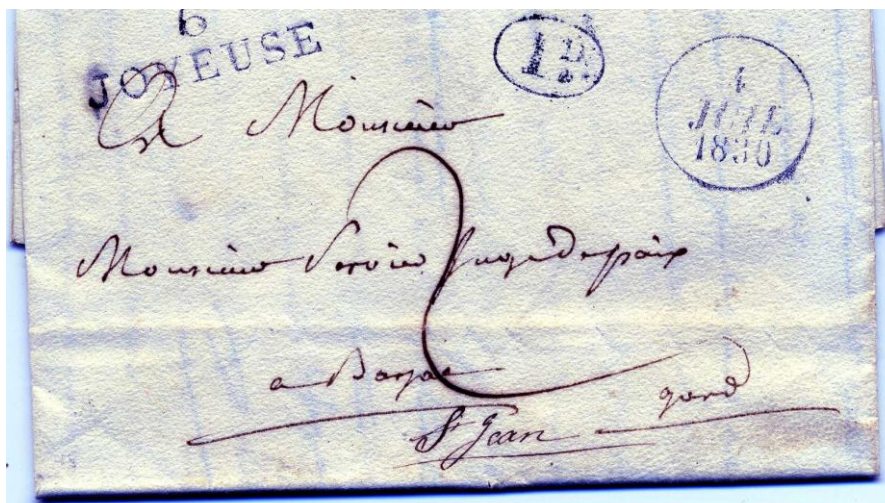 6
JOYEUSE
1 D.
1
JUIL
1830
A Monsieur
2
Monsieur Servier Juge de paix
a Barjac
gard
St Jean